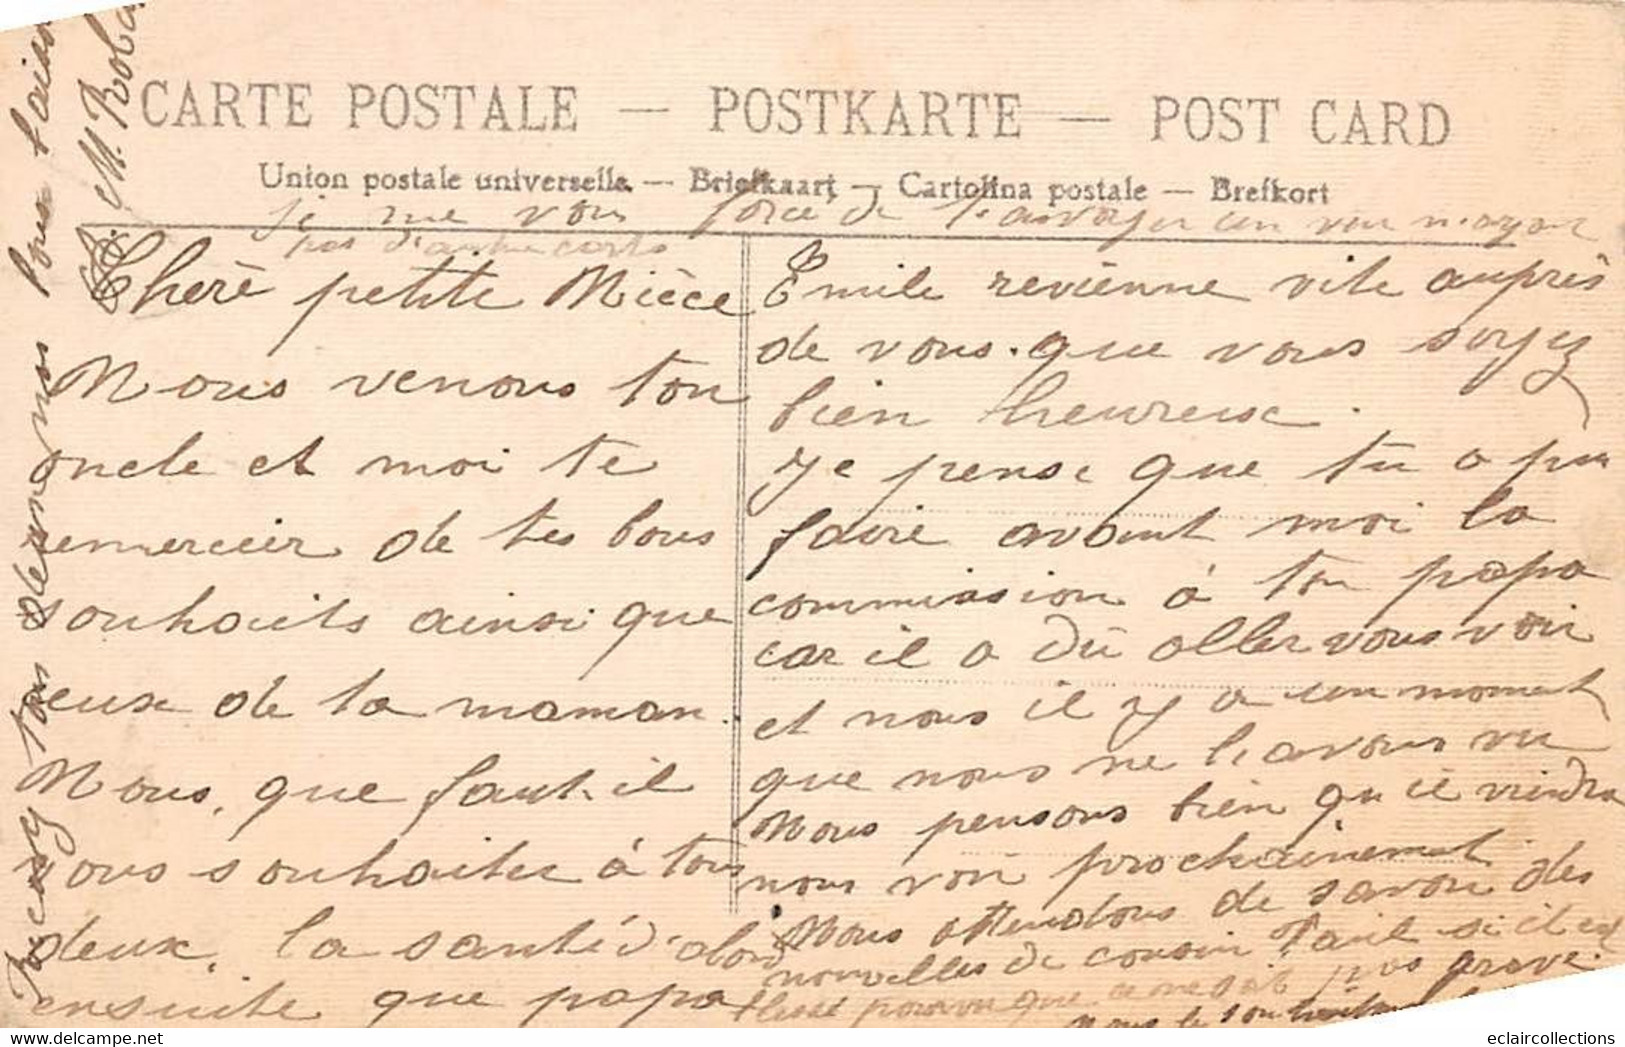 CARTE POSTALE — POSTKARTE — POST CARD
Union postale universelle. — Briefkaart — Cartolina postale — Brefkort
je me vous force de l'envoyer un vue n'ayant
pas d'autre carte
Cherè petite Nièce
Nous venons ton
oncle et moi te
remercier de tes bons
souhaits ainsi que
ceux de ta maman.
Nous, que faut-il
vous souhaiter à tous
deux, la santé d'abord
ensuite que papa
Emile reviènne vite auprès
de vous. que vous soyez
bien heureux.
Je pense que tu a pu
faire avant moi la
commission à ton papa
car il a dû aller vous voir
et nous il y a un moment
que nous ne l'avons vu
Nous pensons bien qu'il viendra
nous voir prochainement
Nous attendons de savoir des
nouvelles de cousin Paul si il est
blessé pourvu que ce ne soit pas grave.
nous le souhaitons
Recevez tous deux nos bons baisers
M. Rob
eclaircollections